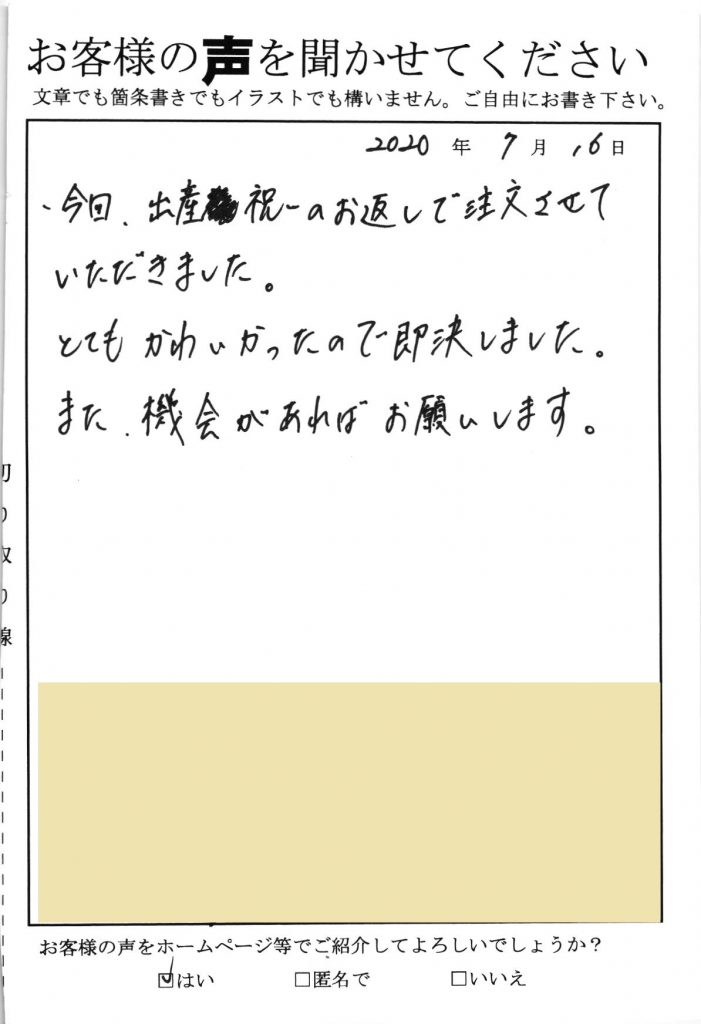 お客様の声を聞かせてください
文章でも箇条書きでもイラストでも構いません。ご自由にお書き下さい。
2020 年 7 月 16 日
・今回、出産祝いのお返しで注文させて
いただきました。
とてもかわいかったので即決しました。
また、機会があればお願いします。
切り取り線
お客様の声をホームページ等でご紹介してよろしいでしょうか？
☑はい □匿名で □いいえ